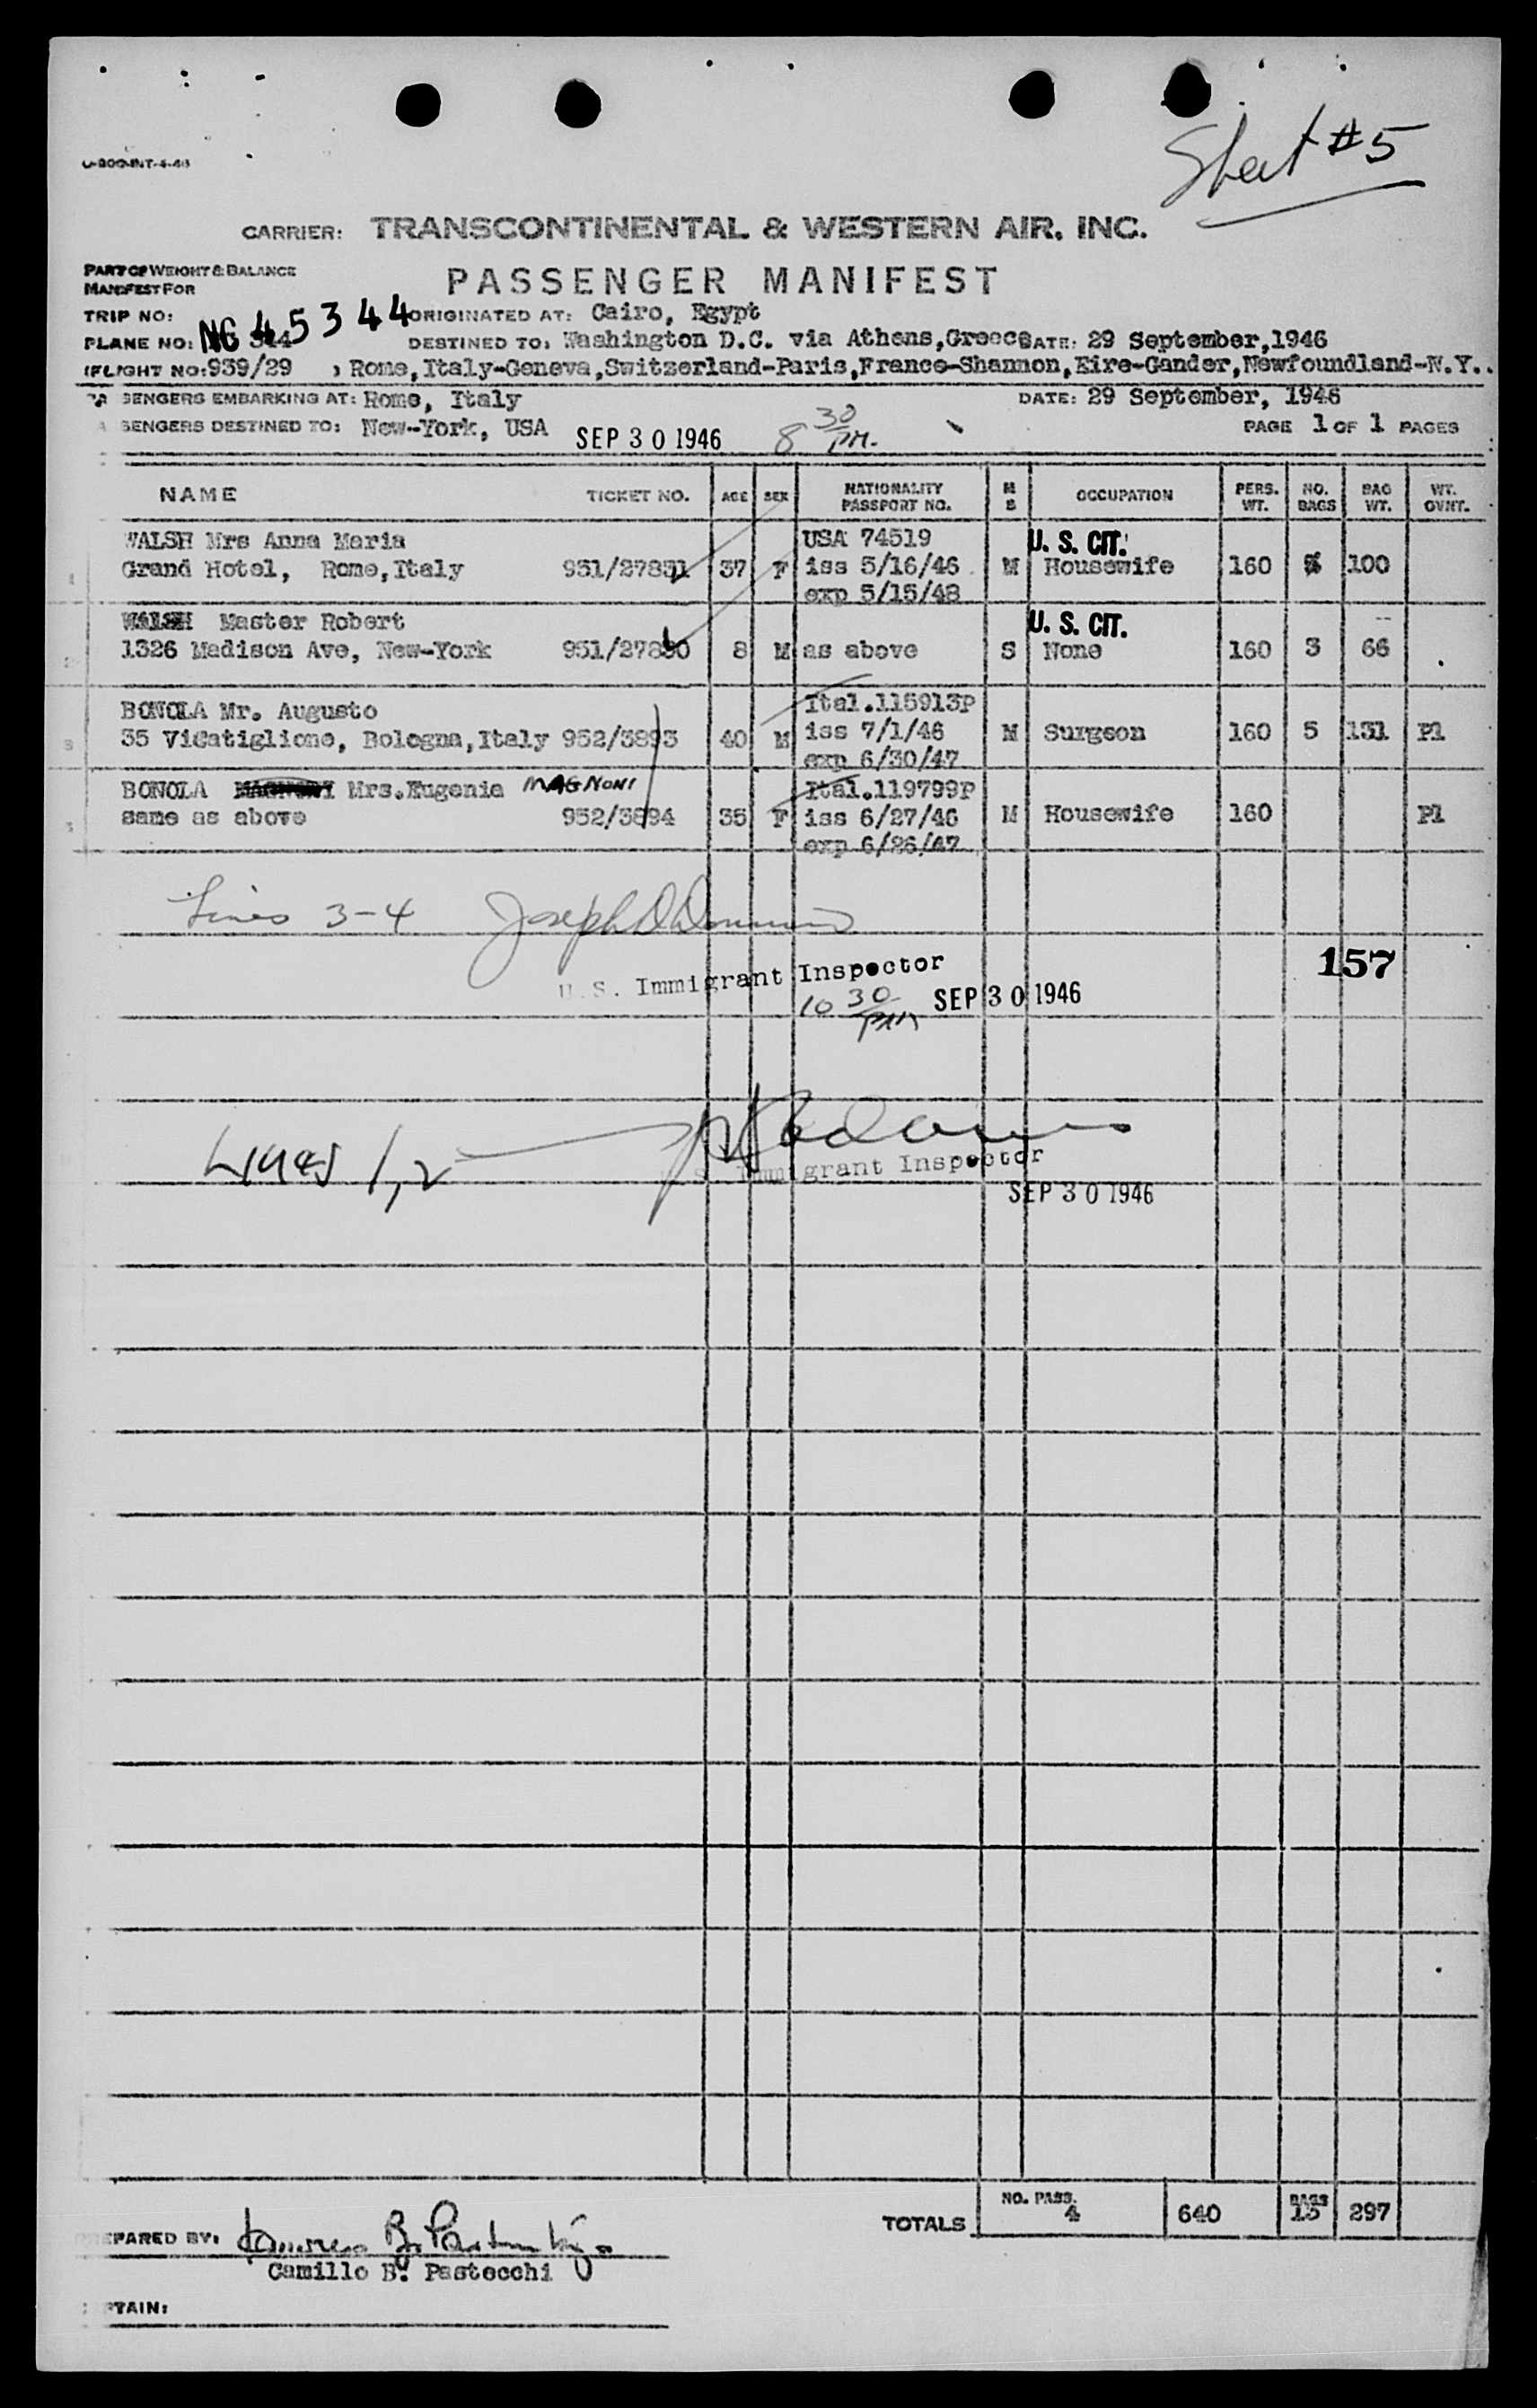 Sheet #5
CARRIER: TRANSCONTINENTAL & WESTERN AIR, INC.
PART OF WEIGHT & BALANCE
MANIFEST FOR
PASSENGER MANIFEST
TRIP NO: ORIGINATED AT: Cairo, Egypt
PLANE NO: NC 45344 DESTINED TO: Washington D.C. via Athens, Greece DATE: 29 September, 1946
FLIGHT NO: 939/29 , Rome, Italy-Geneva, Switzerland-Paris, France-Shannon, Eire-Gander, Newfoundland-N.Y..
SENGERS EMBARKING AT: Rome, Italy DATE: 29 September, 1946
SENGERS DESTINED TO: New-York, USA SEP 30 1946 8 30 PM. PAGE 1 OF 1 PAGES
NAME TICKET NO. AGE SEX NATIONALITY PASSPORT NO. M S OCCUPATION PERS. WT. NO. BAGS BAG WT. WT. OVNT.
WALSH Mrs Anna Maria USA 74519 U. S. CIT.
1 Grand Hotel, Rome, Italy 951/27831 37 F iss 5/16/46 M Housewife 160 100
exp 5/15/48
WALSH Master Robert U. S. CIT.
2 1326 Madison Ave, New-York 951/27830 8 M as above S None 160 3 66
BONOLA Mr. Augusto Ital.115913P
3 35 ViCatiglione, Bologna, Italy 952/3893 40 M iss 7/1/46 M Surgeon 160 5 131 Pl
exp 6/30/47
BONOLA Mrs. Eugenia MAGNONI Ital.119799P
same as above 952/3894 35 F iss 6/27/46 M Housewife 160 Pl
exp 6/26/47
Lines 3-4 Joseph
U. S. Immigrant Inspector 157
10 30 PM SEP 30 1946
Lines 1,2
U. S. Immigrant Inspector
SEP 30 1946
TOTALS NO. PASS. 4 640 BAGS 15 297
EPARED BY:
Camillo B. Pastecchi
PTAIN: